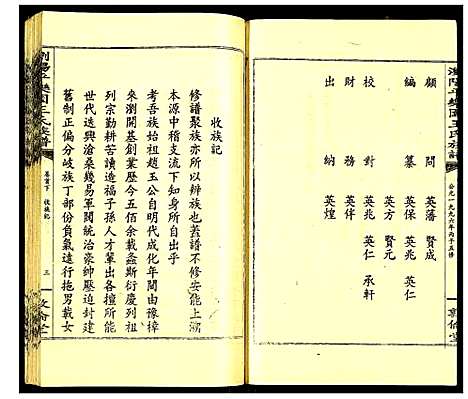 公元一九九六年丙子五修
顧問 英藩 賢成
編纂 英保 英仁
英方 賢元
校對 英兆 英仁 承軒
財務 英伴
出納 英煌
瀏陽平樂園王氏族譜
卷首下 收族記
三
收族記
修譜聚族亦所以辨族也蓋譜不修安能上溯
本源中稽支流下知自所出乎
考吾族始祖趙玉公自明代成化年間由豫樟
來瀏開基創業歷今五佰余載螽斯衍慶列祖
列宗勤耕苦讀造福子孫人才輩出各擅所能
興行遞傳滄桑幾易軍閥統治豪紳壓迫封建
舊制正偏分岐族丁部份負氣遠行拖男載女